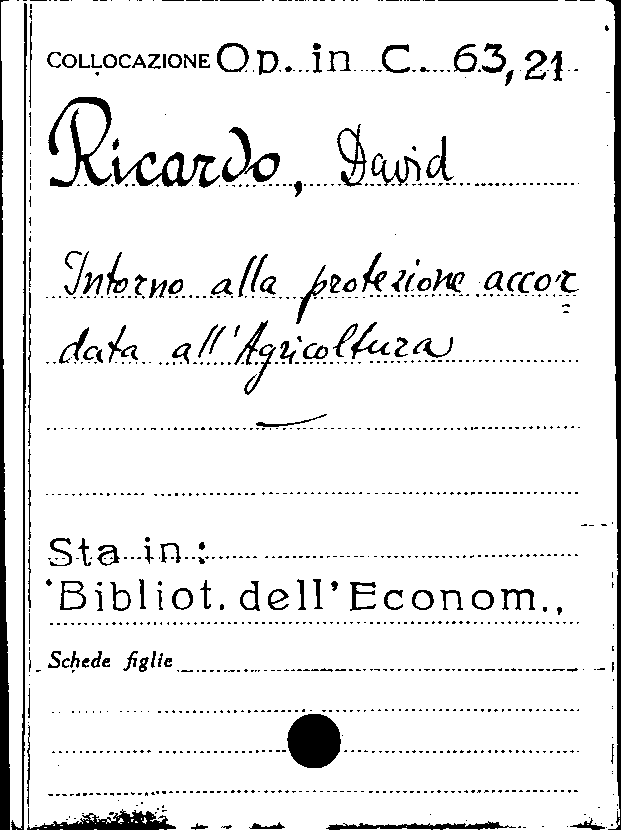 COLLOCAZIONE Op. in C. 63,21
Ricardo, David
Intorno alla protezione accor=
data all'Agricoltura
Sta in:
Bibliot. dell'Econom.,
Schede figlie